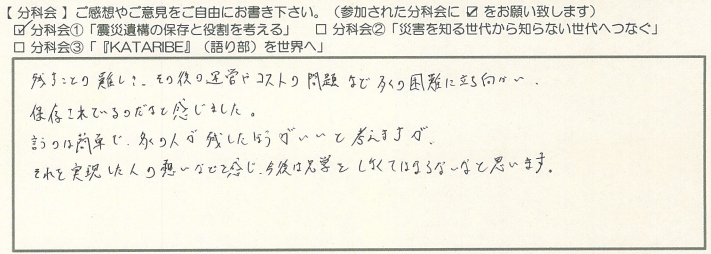 【 分科会 】 ご感想やご意見をご自由にお書き下さい。（参加された分科会に ☑ をお願い致します）
☑ 分科会①「震災遺構の保存と役割を考える」 □ 分科会②「災害を知る世代から知らない世代へつなぐ」
□ 分科会③「『KATARIBE』（語り部）を世界へ」
残すことの難しさ、その後の運営やコストの問題など多くの困難に立ち向かい、
保存されているのだなと感じました。
言うのは簡単で、多くの人が残したほうがいいと考えますが、
それを実現した人の想いなどを感じ、今後は見学をしなくてはならないなと思います。